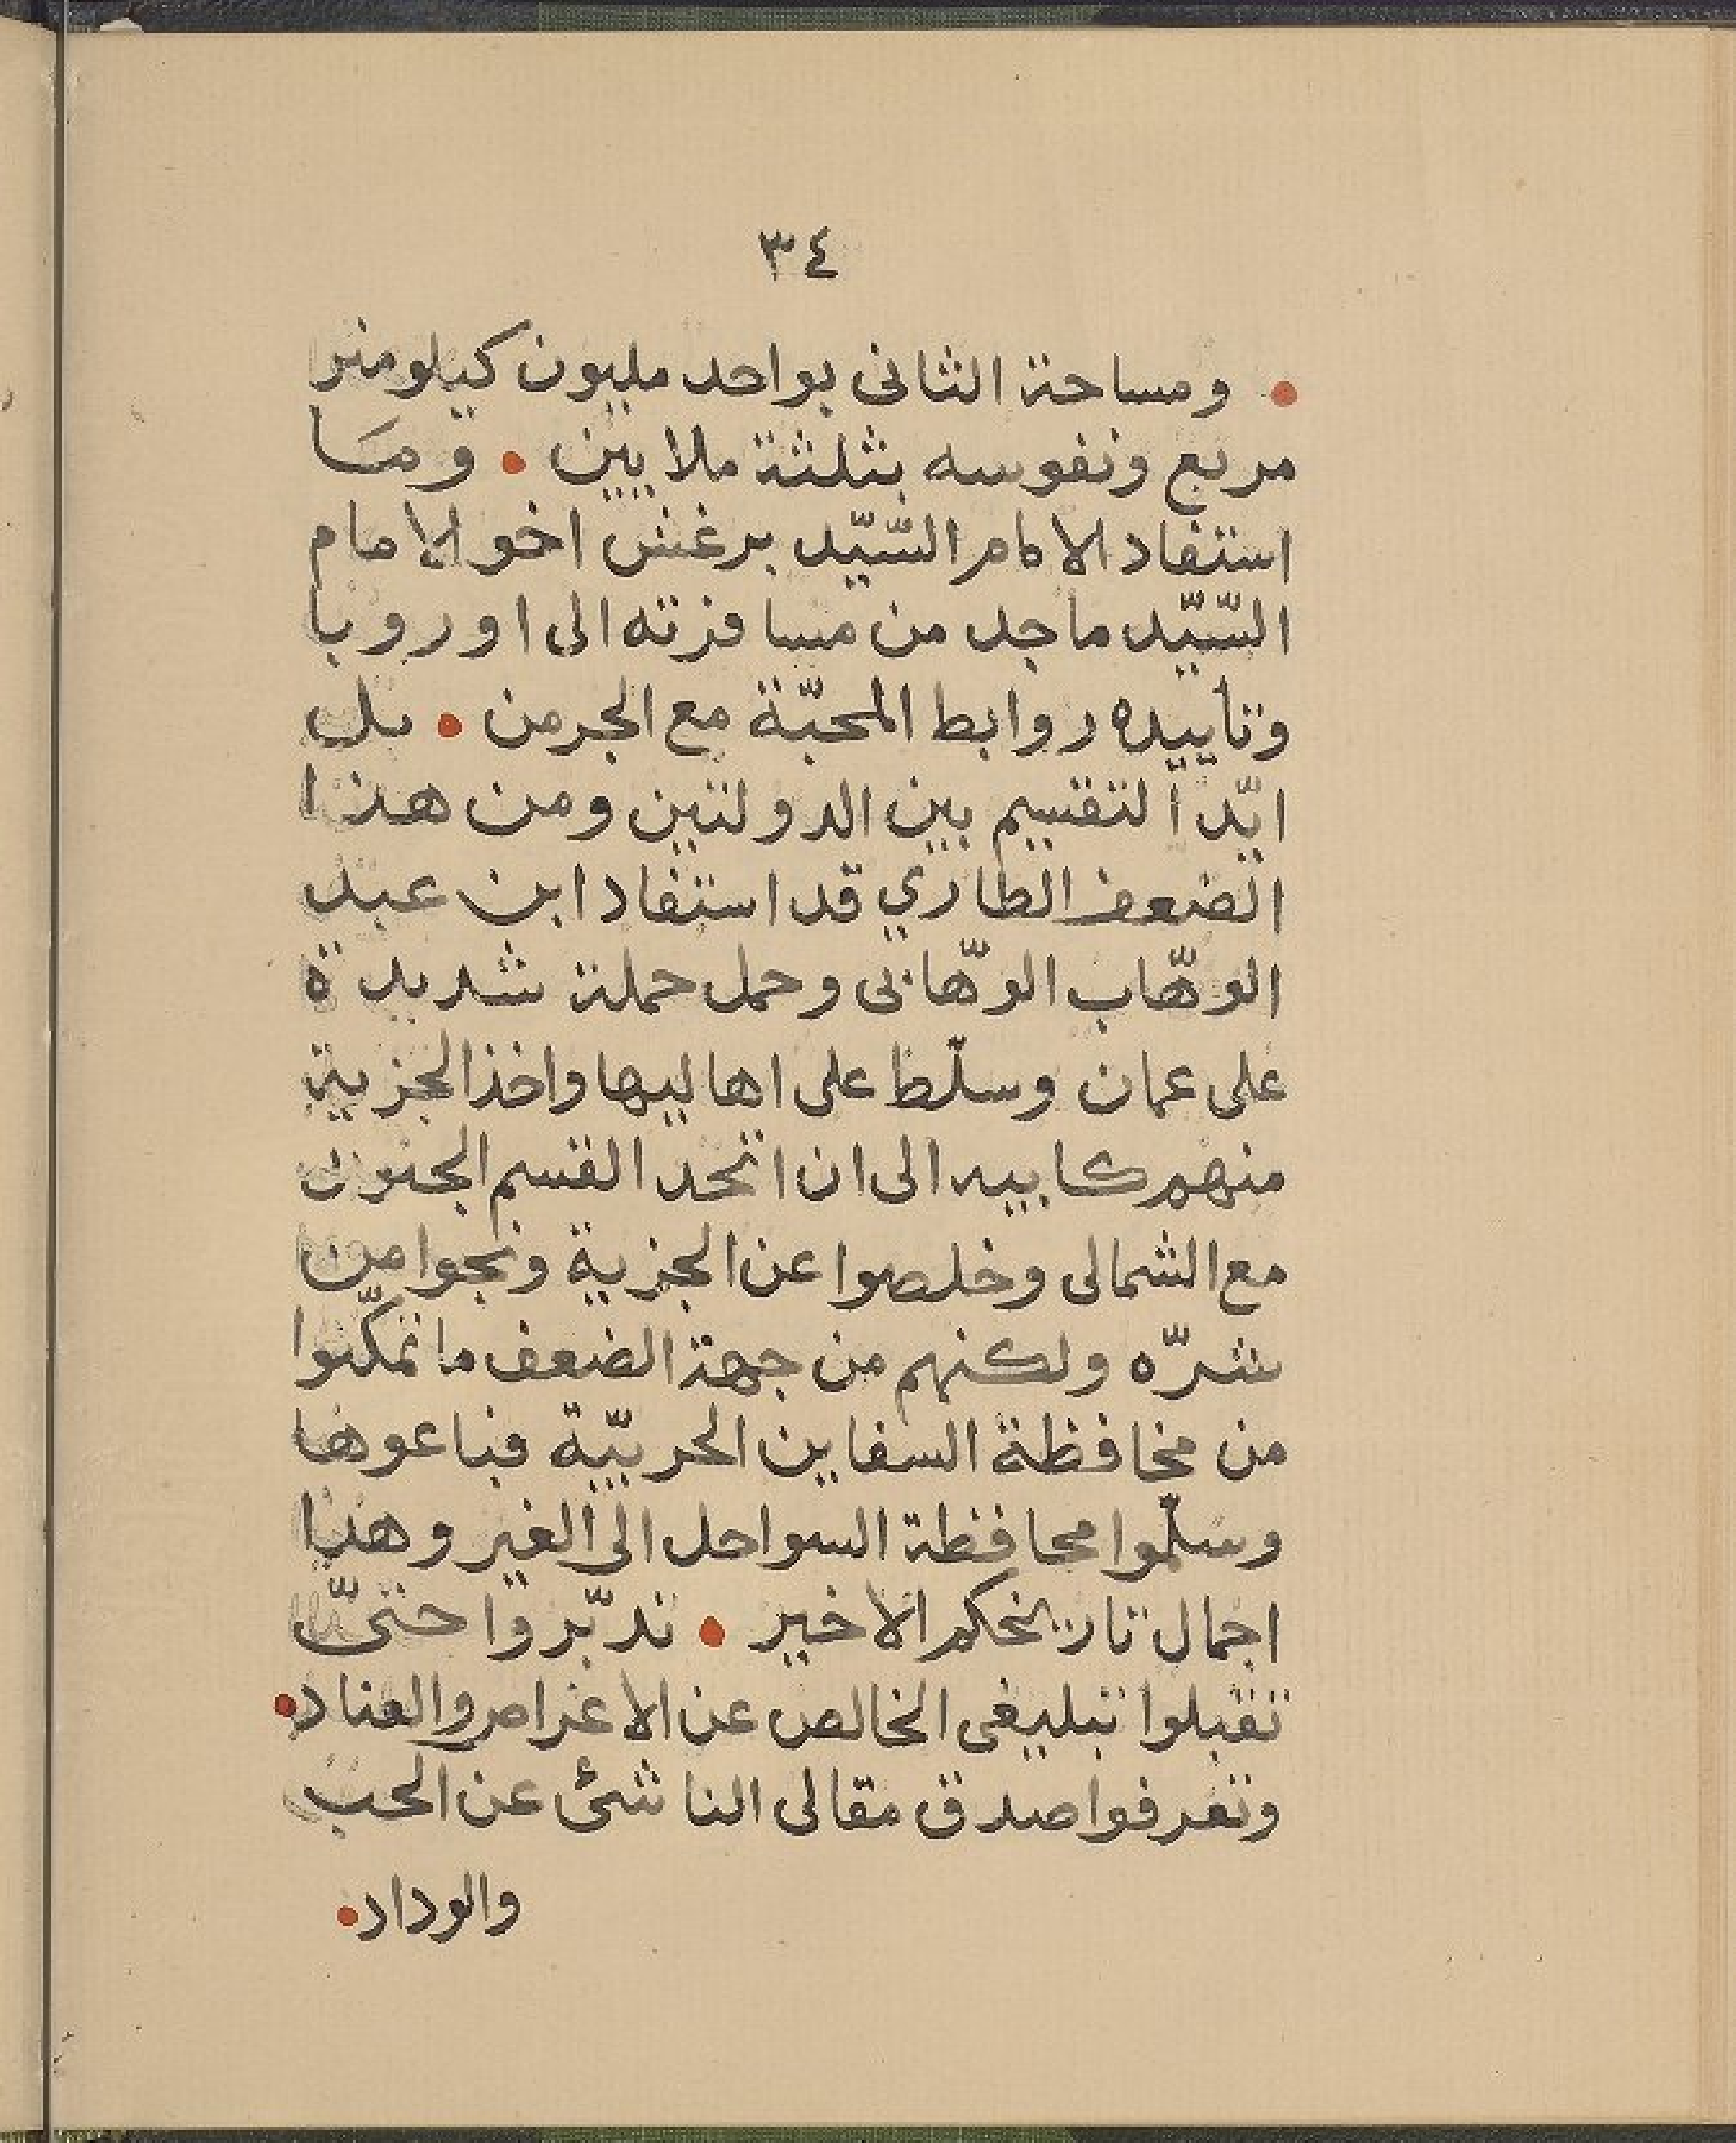 ٣٤
• ومساحة الثانى بواحد مليون كيلومتر
مربع ونفوسه بثلثة ملايين • ومَا
استفاد الامام السّيّد برغش اخو الامام
السّيّد ماجد من مسافرته الى اوروبا
وتأييده روابط المحبّة مع الجرمن • بل
ايّد التقسيم بين الدولتين ومن هذا
الضعف الطاري قد استفاد ابن عبد
الوهّاب الوهّابى وحمل حملة شديدة
على عمان وسلّط على اهاليها واخذ الجزية
منهم كابيه الى ان اتحد القسم الجنوبى
مع الشمالى وخلصوا عن الجزية ونجوا من
شرّه ولكنهم من جهة الضعف ما تمكّنوا
من مخافظة السفاين الحربيّة فباعوها
وسلّموا محافظة السواحل الى الغير وهذا
اجمال تاريخكم الاخير • تدبّروا حتىّ
تقبلوا تبليغى الخالص عن الاغراض والعناد •
وتعرفوا صدق مقالى الناشئ عن الحب
والوداد •